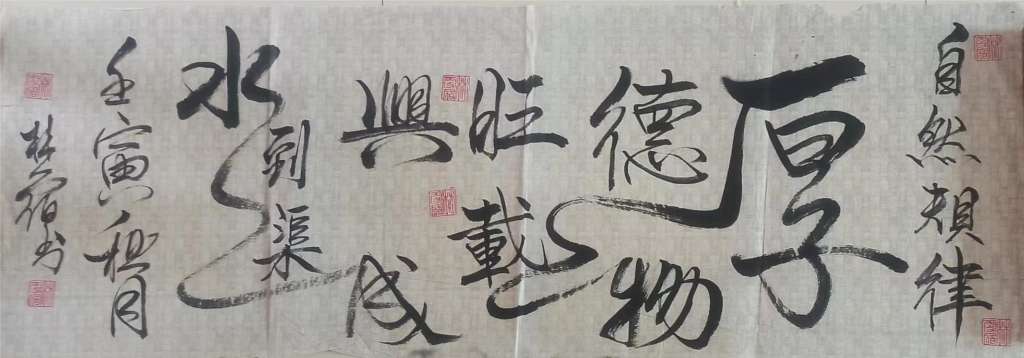 自然規律
厚
德物
旺載
興成
到渠
水
壬寅秋月
书